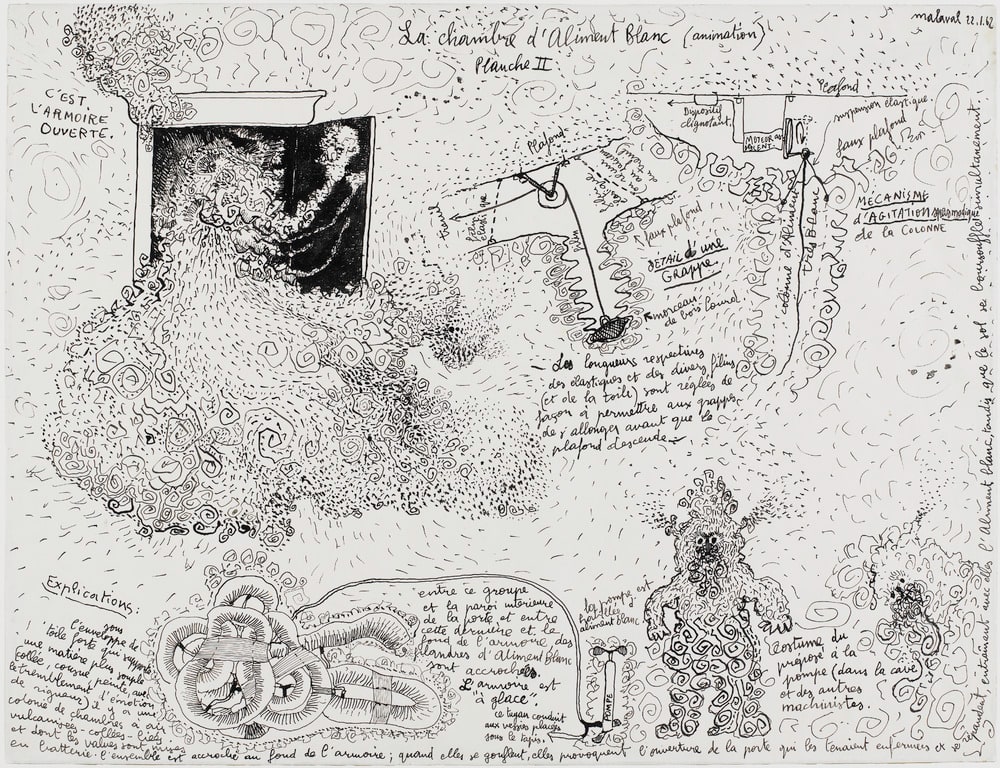 malaval 22.1.62
La chambre d'Aliment Blanc (animation)
Planche II.
C'EST
L'ARMOIRE
OUVERTE.
Plafond
Dispositif
clignotant.
MOTEUR
LENT.
suspension élastique
faux plafond
MÉCANISME
d'AGITATION spasmodique
de la COLONNE
colonne d'Aliment
très Blanc
Plafond
treuil
filin
élastique
filin
faux plafond
DÉTAIL d'une
GRAPPE.
morceau
de bois lourd
Les longueurs respectives
des élastiques et des divers filins
(et de la toile) sont réglées de
façon à permettre aux grappes
de s'allonger avant que le
plafond descende.
Explications:
sous
l'enveloppe de
toile forte qui supporte
une matière plus souple
collée, cousue, peinte, avec
le tremblement l'émotion
de rigueur) il y a une
colonie de chambres à air
vulcanisées - collées - liées
et dont les valves sont mises
en batterie. l'ensemble est accroché au fond de l'armoire; quand elles se gonflent, elles provoquent l'ouverture de la porte qui les tenaient enfermées et se
répandent, entraînant avec elles l'Aliment blanc, tandis que le sol se boursoufle simultanément.
entre ce groupe
et la paroi intérieure
de la porte et entre
cette dernière et le
fond de l'armoire des
filandres d'Aliment blanc
sont
accrochées.
L'armoire est
à glace.
ce tuyau conduit
aux vessies placées
sous le tapis.
la pompe est
aliment blanc
POMPE
Costume du
préposé à la
pompe (dans la cave)
et des autres
machinistes.